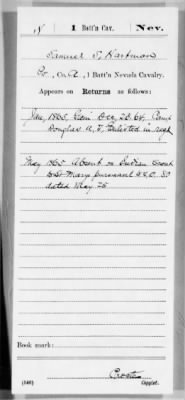 1 Batt'n Cav. Nev.
Samuel T. Hartman
Co. A, 1 Batt'n Nevada Cavalry.
Appears on Returns as follows:
Jan, 1865, Gain Dec 28, 64, Camp
Douglas U. T., Enlisted in regt
May 1865 Absent on Indian Scout
to St Mary pursuant S.O. 30
dated May 25
Book mark:
(546)
Copyist.